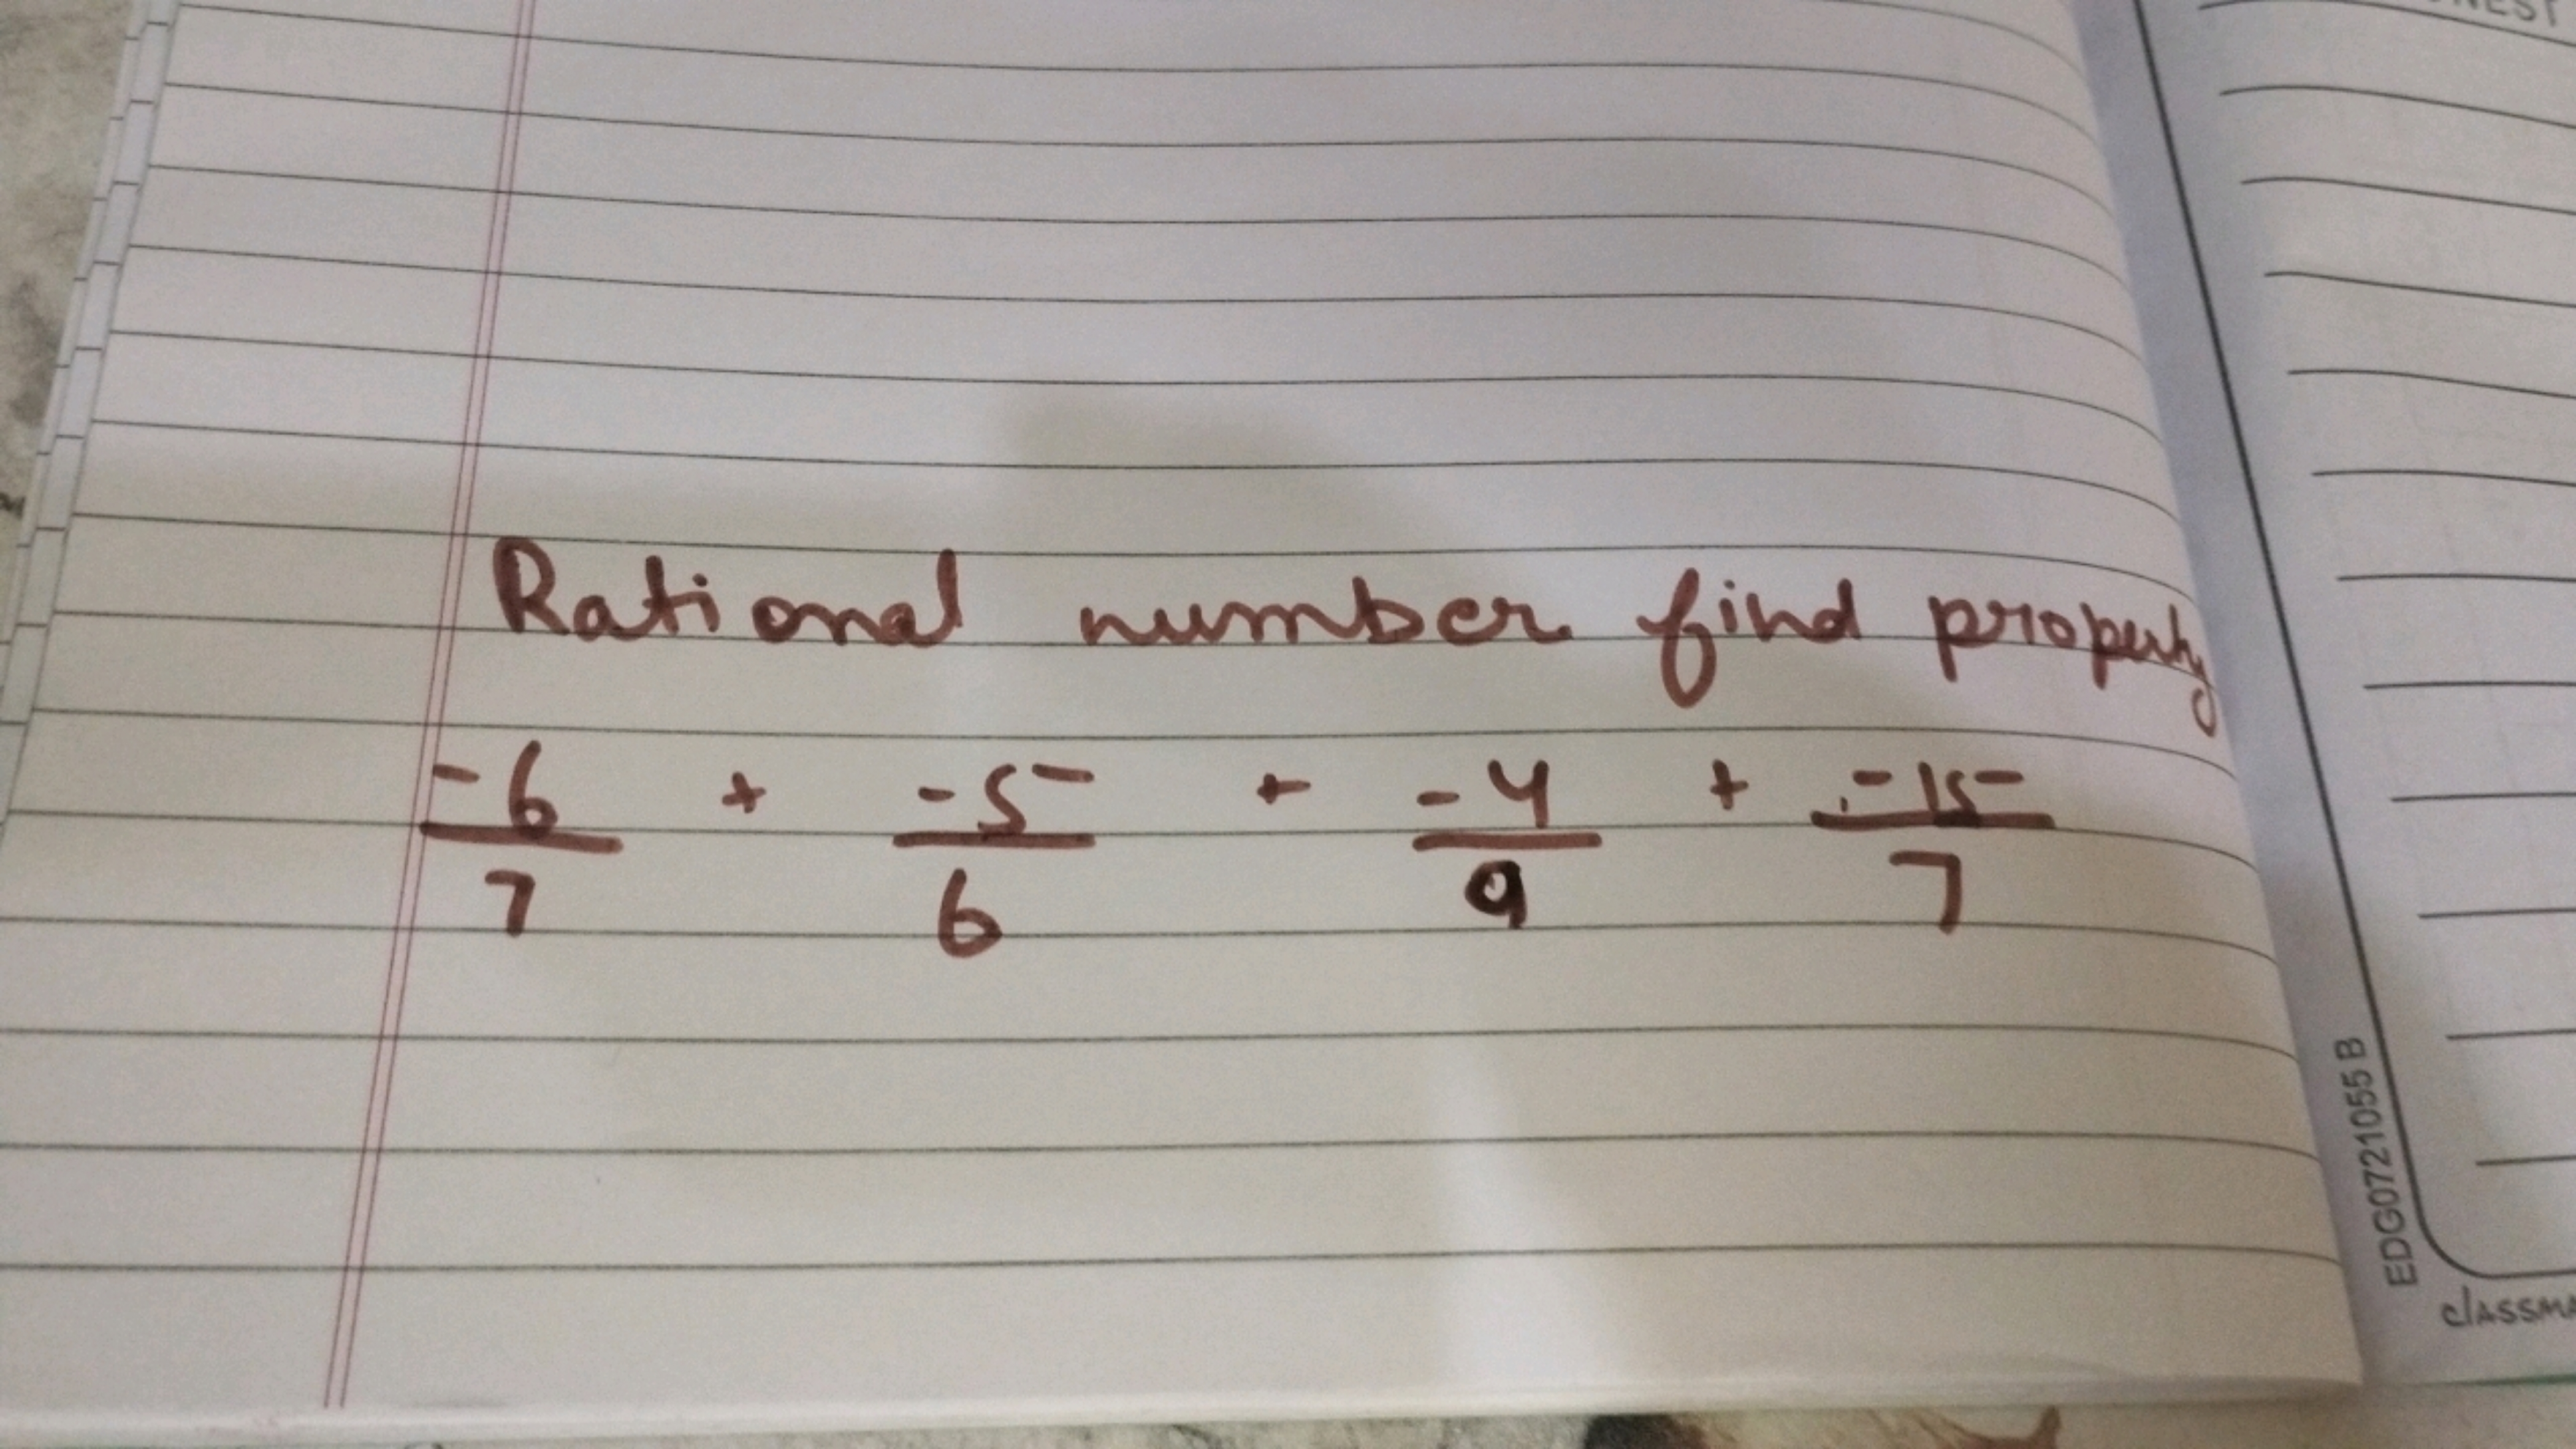 NEST
Rational number find property
-6/7 + -5/6 + -4/9 + -15/7
EDG0721055 B
classma